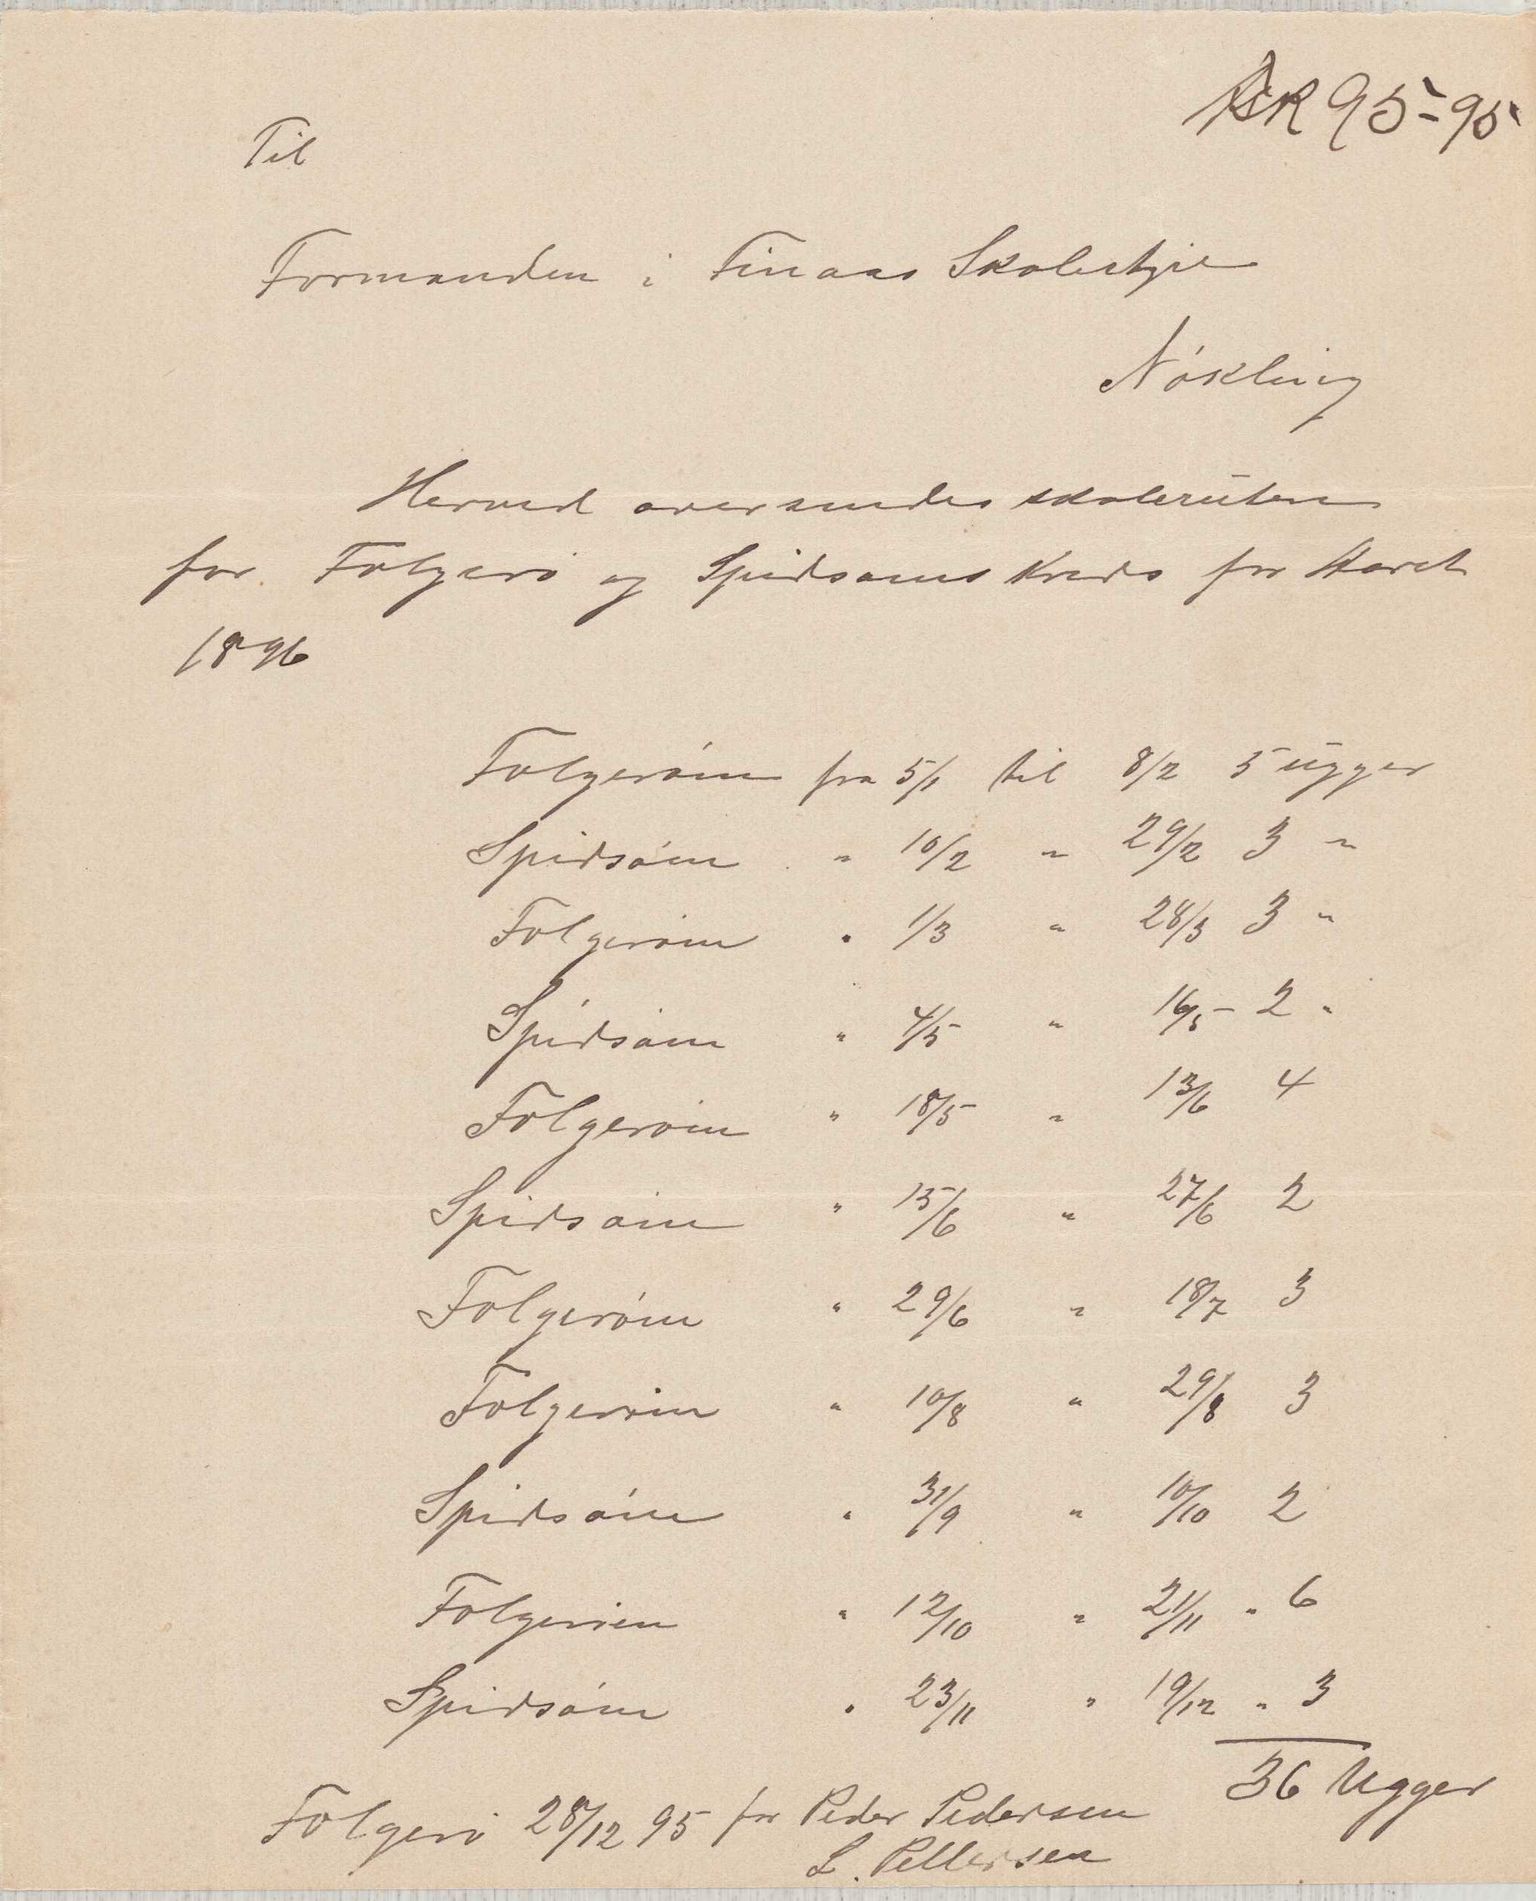 SR 95-95
Til
Formanden i Finaas Skolestyre
Nökling
Herved oversendes skoleruten
for Folgerö og Spidsöens Kreds for Aaret
1896
Folgeröen fra 5/1 til 8/2 5 ugger
Spidsöen " 10/2 " 29/2 3 "
Folgeröen " 1/3 " 28/3 3 "
Spidsöen " 4/5 " 16/5 - 2 "
Folgeröen " 18/5 " 13/6 4
Spidsöen " 15/6 " 27/6 2
Folgeröen " 29/6 " 18/7 3
Folgeröen " 10/8 " 29/8 3
Spidsöen " 31/9 " 10/10 2
Folgeröen " 12/10 " 21/11 " 6
Spidsöen " 23/11 " 19/12 " 3
36 Ugger
Folgerö 28/12 95 for Peder Pedersen
L. Pettersen